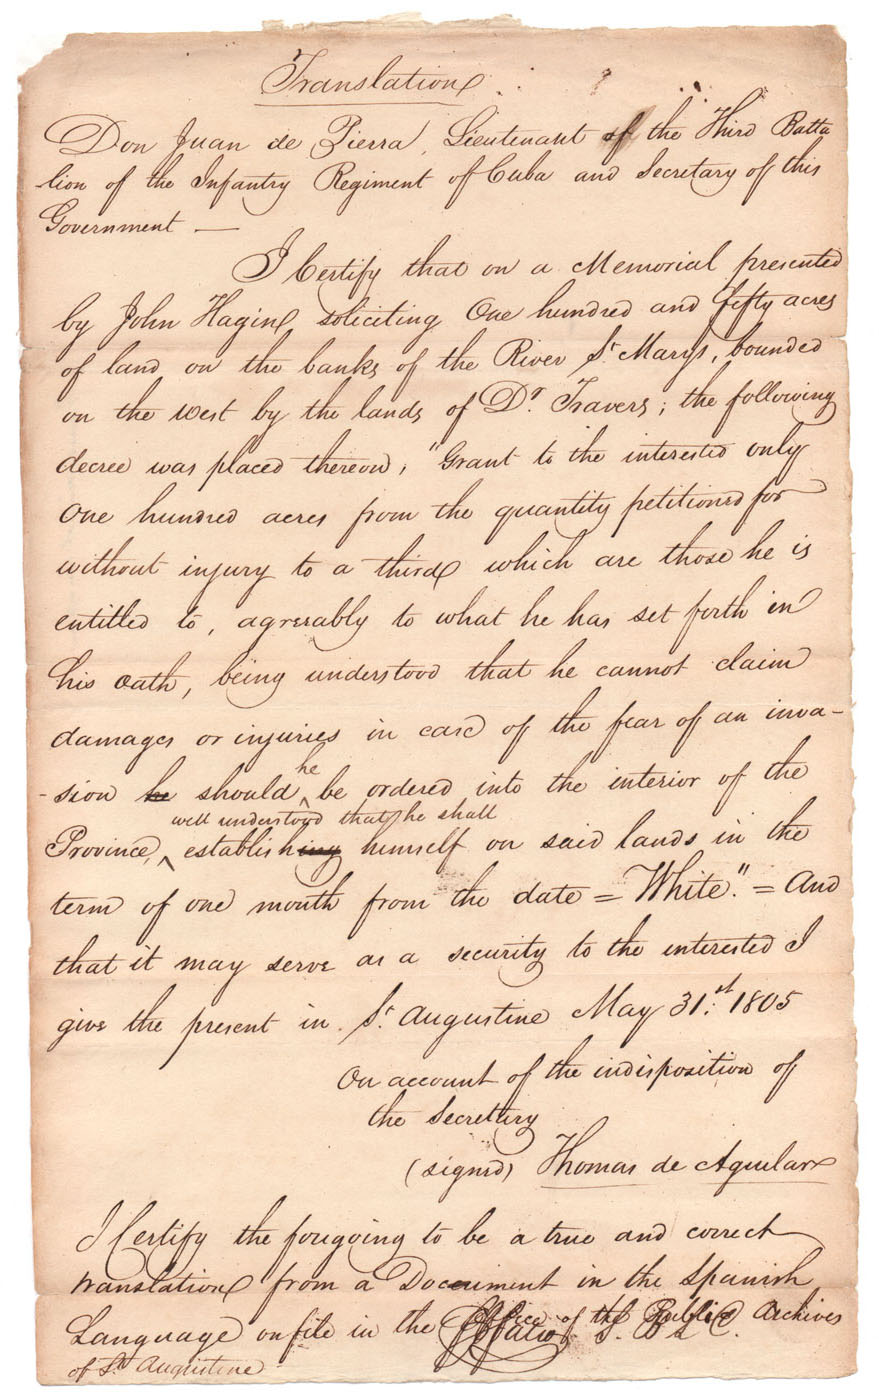 Translation
Don Juan de Pierra, Lieutenant of the Third Batta
-lion of the Infantry Regiment of Cuba and Secretary of this
Government —
I Certify that on a Memorial presented
by John Hagin, soliciting One hundred and fifty acres
of land on the banks of the River St. Marys, bounded
on the west by the lands of Dr. Travers; the following
decree was placed thereon, "Grant to the interested only
One hundred acres from the quantity petitioned for
without injury to a third which are those he is
entitled to, agreeably to what he has set forth in
his oath, being understood that he cannot claim
damages or injuries in case of the fear of an inva-
-sion he should he be ordered into the interior of the
well understood that he shall
Province, establishing himself on said lands in the
term of one month from the date = White". = And
that it may serve as a security to the interested I
give the present in St. Augustine May 31st. 1805
On account of the indisposition of
the Secretary
(signed) Thomas de Aguilar
I Certify the forgoing to be a true and correct
translation from a Document in the Spanish
Language on file in the Office of the Public Archives
of St. Augustine